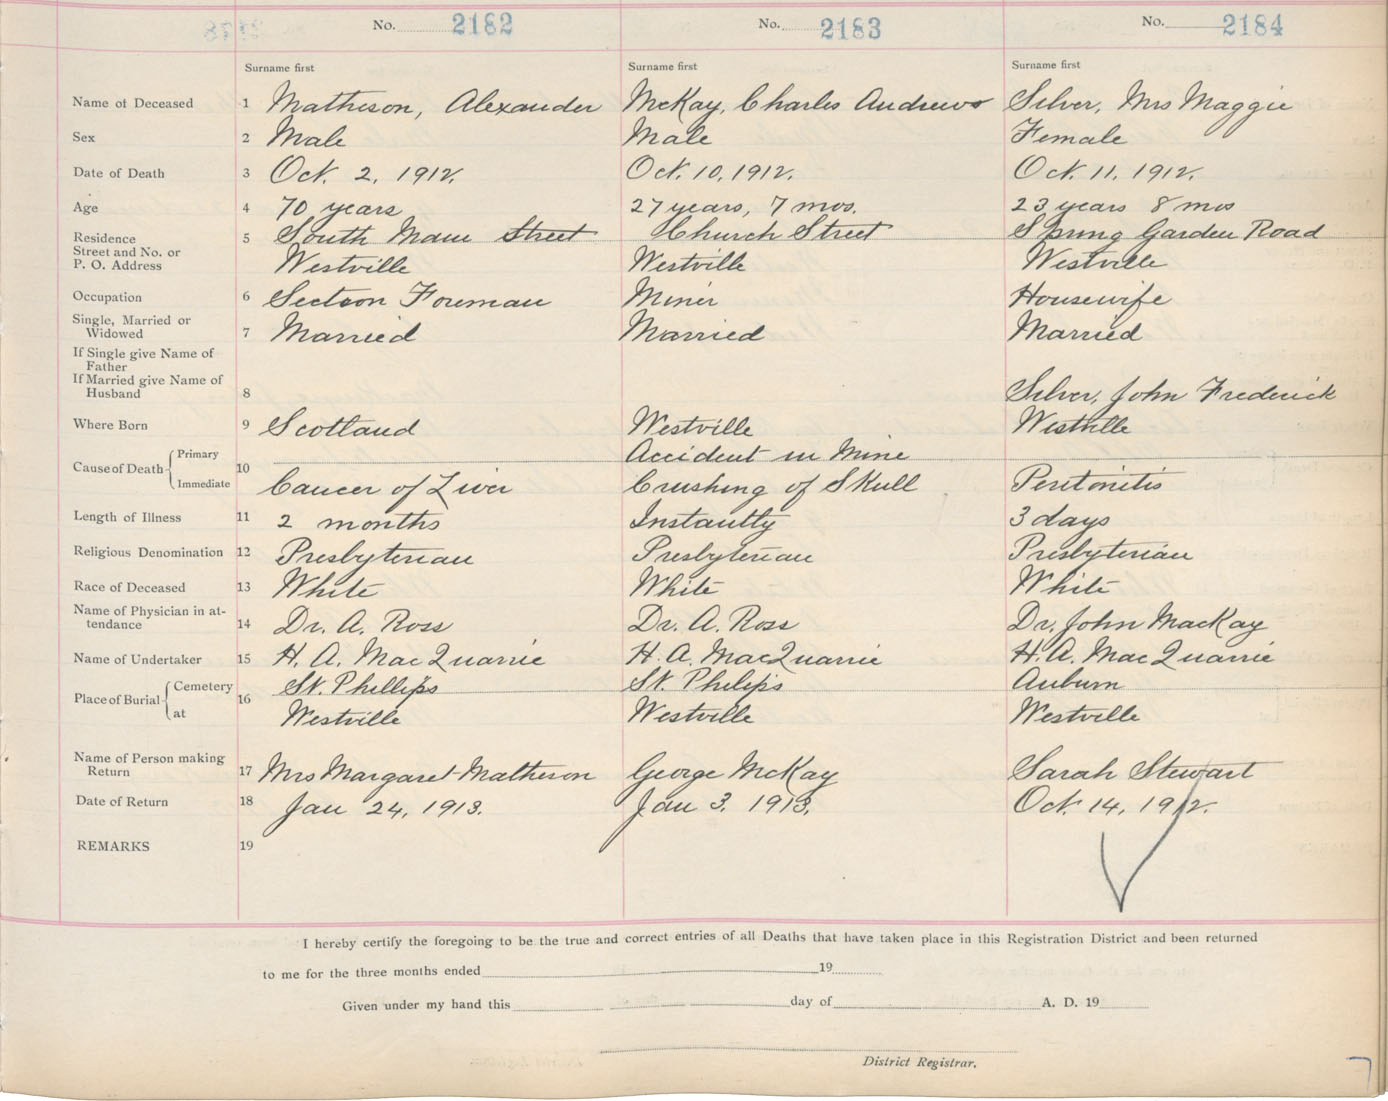 No. 2182 No. 2183 No. 2184
Surname first Surname first Surname first
Name of Deceased 1 Matheson, Alexander McKay, Charles Andrews Silver, Mrs Maggie
Sex 2 Male Male Female
Date of Death 3 Oct. 2, 1912. Oct. 10, 1912. Oct. 11, 1912.
Age 4 70 years 27 years, 7 mos. 23 years 8 mos
Residence 5 South Main Street Church Street Spring Garden Road
Street and No. or
P. O. Address Westville Westville Westville
Occupation 6 Section Foreman Miner Housewife
Single, Married or
Widowed 7 Married Married Married
If Single give Name of
Father
If Married give Name of
Husband 8 Silver, John Frederick
Where Born 9 Scotland Westville Westville
Cause of Death Primary 10 Accident in Mine
Immediate Cancer of Liver Crushing of Skull Peritonitis
Length of Illness 11 2 months Instantly 3 days
Religious Denomination 12 Presbyterian Presbyterian Presbyterian
Race of Deceased 13 White White White
Name of Physician in at-
tendance 14 Dr. A. Ross Dr. A. Ross Dr. John MacKay
Name of Undertaker 15 H. A. MacQuarrie H. A. MacQuarrie H. A. MacQuarrie
Place of Burial Cemetery 16 St. Phillips St. Philips Auburn
at Westville Westville Westville
Name of Person making
Return 17 Mrs Margaret Matheson George McKay Sarah Stewart
Date of Return 18 Jan 24, 1913. Jan 3. 1913. Oct. 14, 1912.
REMARKS 19
I hereby certify the foregoing to be the true and correct entries of all Deaths that have taken place in this Registration District and been returned
to me for the three months ended 19
Given under my hand this day of A. D. 19
District Registrar.